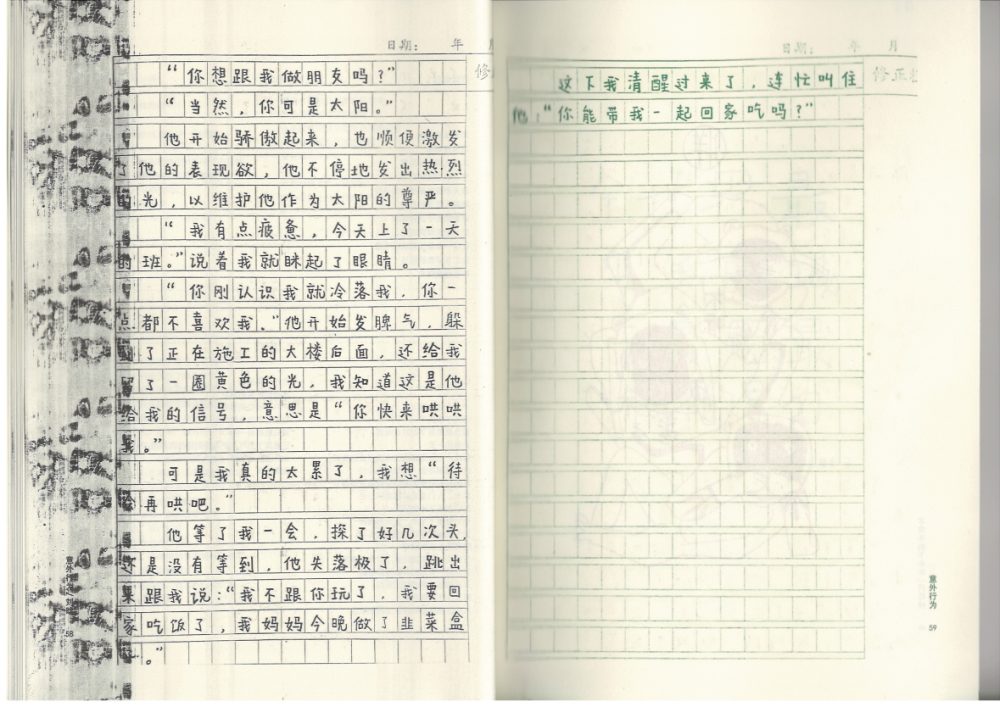 日期： 年 月
修
“你想跟我做朋友吗？”
“当然，你可是太阳。”
他开始骄傲起来，也顺便激发
了他的表现欲，他不停地发出热烈
的光，以维护他作为太阳的尊严。
“我有点疲惫，今天上了一天
的班。”说着我就眯起了眼睛。
“你刚认识我就冷落我，你一
点都不喜欢我。”他开始发脾气，躲
了正在施工的大楼后面，还给我
留了一圈黄色的光，我知道这是他
给我的信号，意思是“你快来哄哄
我。”
可是我真的太累了，我想“待
再哄吧。”
他等了我一会，探了好几次头，
还是没有等到，他失落极了，跳出
来跟我说：“我不跟你玩了，我要回
家吃饭了，我妈妈今晚做了韭菜盒
。”
58
日期： 年 月
修正
这下我清醒过来了，连忙叫住
他：“你能带我一起回家吃吗？”
意外行为
59